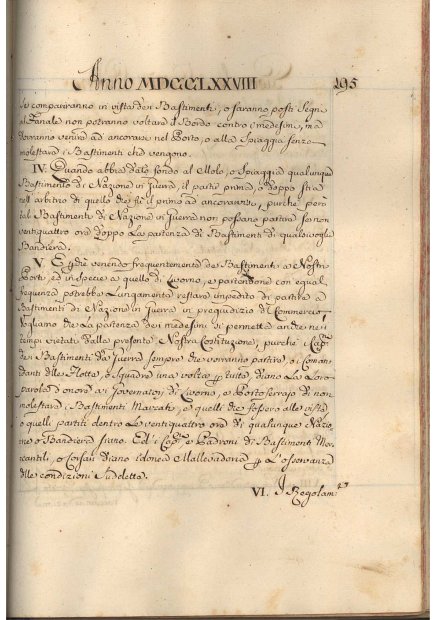 Anno MDCCLXXVIII 195
se compariranno in vista dei Bastimenti, o saranno posti Segni
al Fanale non potranno voltare il Bordo contro i medesimi, ma
dovranno venire ad ancorare nel Porto, o alla Spiaggia senza
molestare i Bastimenti che vengono.
IV. Quando abbia dato fondo al Molo, o Spiaggia qualunque
Bastimento di Nazione in Guerra, il partir prima, o doppo stia
nell'arbitrio di quello che fù il primo ad ancorarvi, purche però
tal Bastimenti di Nazione in Guerra non possano partire se non
ventiquattro ore doppo la partenza di Bastimenti di qualsivoglia
Bandiera.
V. E che venendo frequentemente dei Bastimenti ai Nostri
Porti ed in specie a quello di Livorno, e partendone con egual
frequenza potrebbe lungamente restare impedito di partire a
Bastimenti di Nazione in Guerra in pregiudizio del Commercio
Vogliamo che la partenza dei medesimi si permetta anche nei
tempi vietati dalla presente Nostra Costituzione, purche i Capi
dei Bastimenti da Guerra sempre che vorranno partire, o i Coman
danti delle Flotte, o Squadre una volta p tutte, diano la loro
parola d'onore ai Governatori di Livorno, e Portoferrajo di non
molestare i Bastimenti Mercati, e quelli che fossero alla vista
o quelli partiti dentro le ventiquattro ore di qualunque Nazio
ne o Bandiera siano. Ed i Capi e Padroni di Bastimenti Mer
cantili, o Corsari diano idonea Mallevadoria p l'osservanza
delle condizioni sudette.
VI. I Regolam.ti